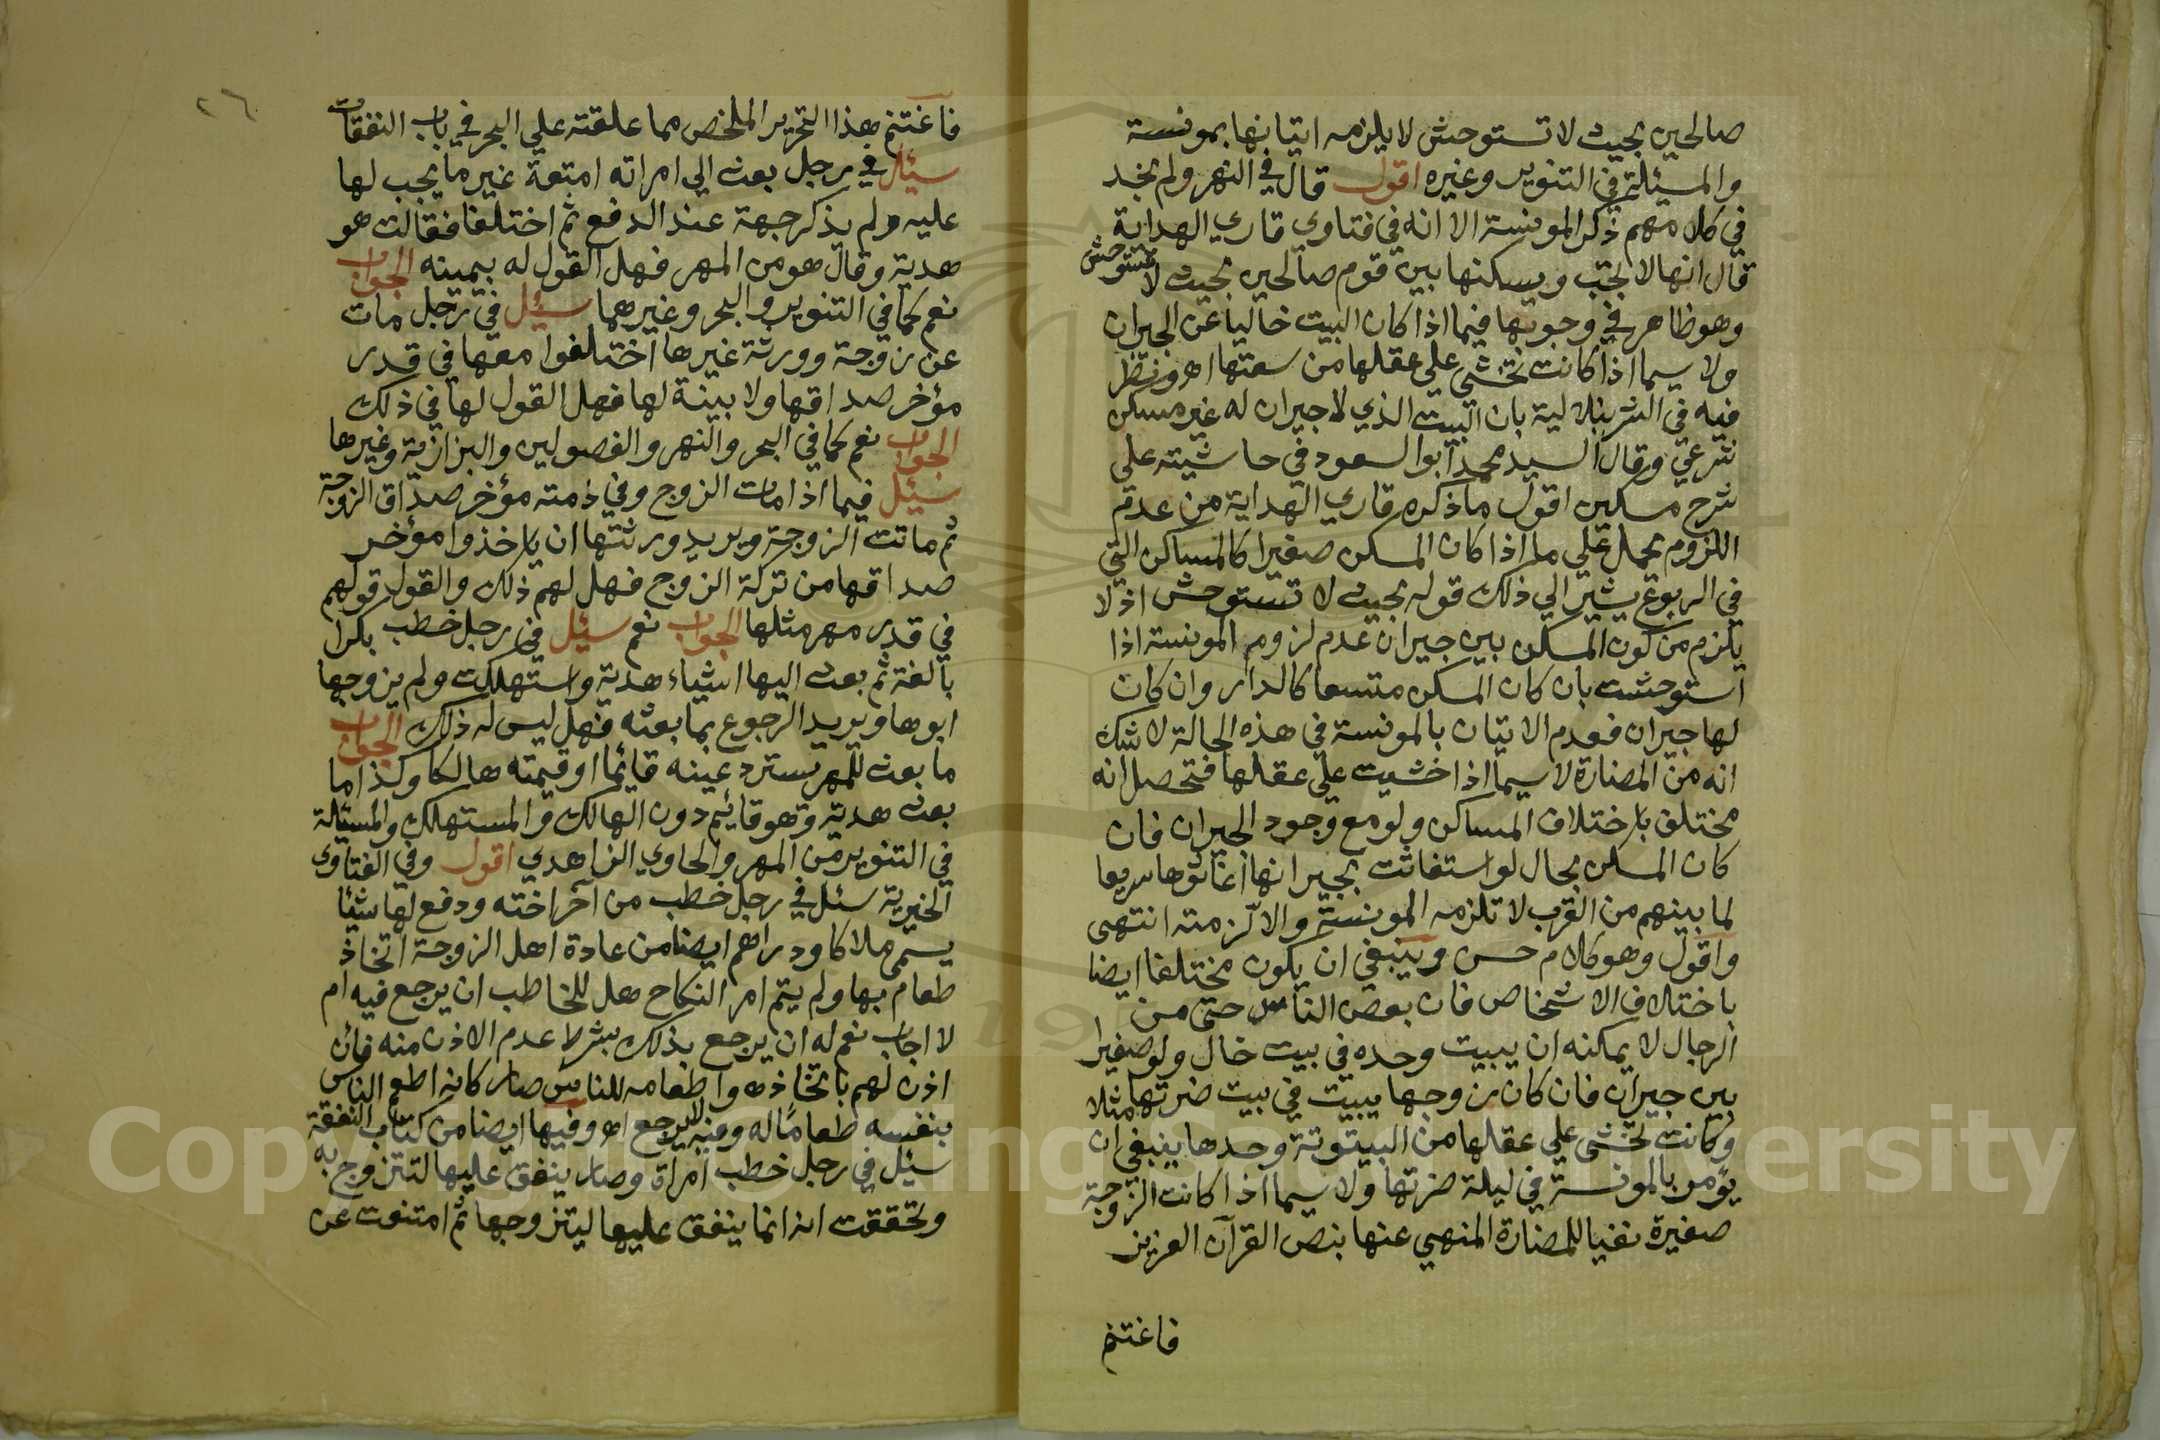 صالحين بحيث لا تستوحش لا يلزمه اتيانها بمونسة
والمسئلة في التنوير وغيره اقول قال في النهر ولم نجد
في كلامهم ذكر المونسة الا انه في فتاوي قاري الهداية
قال انها لا تجب ويسكنها بين قوم صالحين بحيث لا تستوحش
وهو ظاهر في وجوبها فيما اذا كان البيت خاليا عن الجيران
ولا سيما اذا كانت تخشي علي عقلها من سعتها اهـ ونظر
فيه في الشرنبلالية بان البيت الذي لا جيران له غير مسكن
شرعي وقال السيد محمد ابو السعود في حاشيته علي
شرح مسكين اقول ما ذكره قاري الهداية من عدم
اللزوم يحمل علي ما اذا كان المسكن صغيرا كالمساكن التي
في الربوع يشير الي ذلك قوله بحيث لا تستوحش اذ لا
يلزم من كون المسكن بين جيران عدم لزوم المونسة اذا
استوحشت بان كان المسكن متسعا كالدار وان كان
لها جيران فعدم الاتيان بالمونسة في هذه الحالة لا شك
انه من المضارة لا سيما اذا خشيت علي عقلها فتحصل انه
مختلف باختلاف المساكن ولو مع وجود الجيران فان
كان المسكن بحال لو استغاثت بجيرانها اغاثوها سريعا
لما بينهم من القرب لا تلزمه المونسة والا لزمته انتهى
واقول وهو كلام حسن وينبغي ان يكون مختلفا ايضا
باختلاف الاشخاص فان بعض الناس حتى من
الرجال لا يمكنه ان يبيت وحده في بيت خال ولو صغيرا
بين جيران فان كان زوجها يبيت في بيت ضرتها مثلا
وكانت تخشى علي عقلها من البيتوتة وحدها ينبغي ان
يؤمر بالمونسة في ليلة ضرتها ولا سيما اذا كانت الزوجة
صغيرة نفيا للمضارة المنهي عنها بنص القرآن العزيز
فاغتنم
٢٦
فاغتنم هذا التحرير الملخص مما علقته علي البحر في باب النفقات
سئل في رجل بعث الي امراته امتعة غير ما يجب لها
عليه ولم يذكر جهة عند الدفع ثم اختلفا فقالت هو
هدية وقال هو من المهر فهل القول له بيمينه الجواب
نعم كما في التنوير والبحر وغيرهما سئل في رجل مات
عن زوجة وورثة غيرها اختلفوا معها في قدر
مؤخر صداقها ولا بينة لها فهل القول لها في ذلك
الجواب نعم كما في البحر والنهر والفصولين والبزازية وغيرها
سئل فيما اذا مات الزوج وفي ذمته مؤخر صداق الزوجة
ثم ماتت الزوجة ويريد ورثتها ان ياخذوا مؤخر
صداقها من تركة الزوج فهل لهم ذلك والقول قولهم
في قدر مهر مثلها الجواب نعم سئل في رجل خطب بكرا
بالغة ثم بعث اليها اشياء هدية واستهلكت ولم يزوجها
ابوها ويريد الرجوع بما بعثه فهل ليس له ذلك الجواب
ما بعث للمهر يسترد عينه قائما او قيمته هالكا وكذا ما
بعث هدية وهو قايم دون الهالك والمستهلك والمسئلة
في التنوير من المهر والحاوي الزاهدي اقول وفي الفتاوى
الخيرية سئل في رجل خطب من آخر اخته ودفع لها شيئا
يسمى ملاكا ودراهم ايضا من عادة اهل الزوجة اتخاذ
طعام بها ولم يتم امر النكاح هل للخاطب ان يرجع فيه ام
لا اجاب نعم له ان يرجع بذلك بشرط عدم الاذن منه فان
اذن لهم باتخاذه واطعامه للناس صار كانه اطعم الناس
بنفسه طعاما له وفيه لا يرجع اهـ وفيها ايضا من كتاب النفقة
سئل في رجل خطب امراة وصار ينفق عليها لتتزوج به
وتحققت انه انما ينفق عليها ليتزوجها ثم امتنعت عن
Copyright © King Saud University